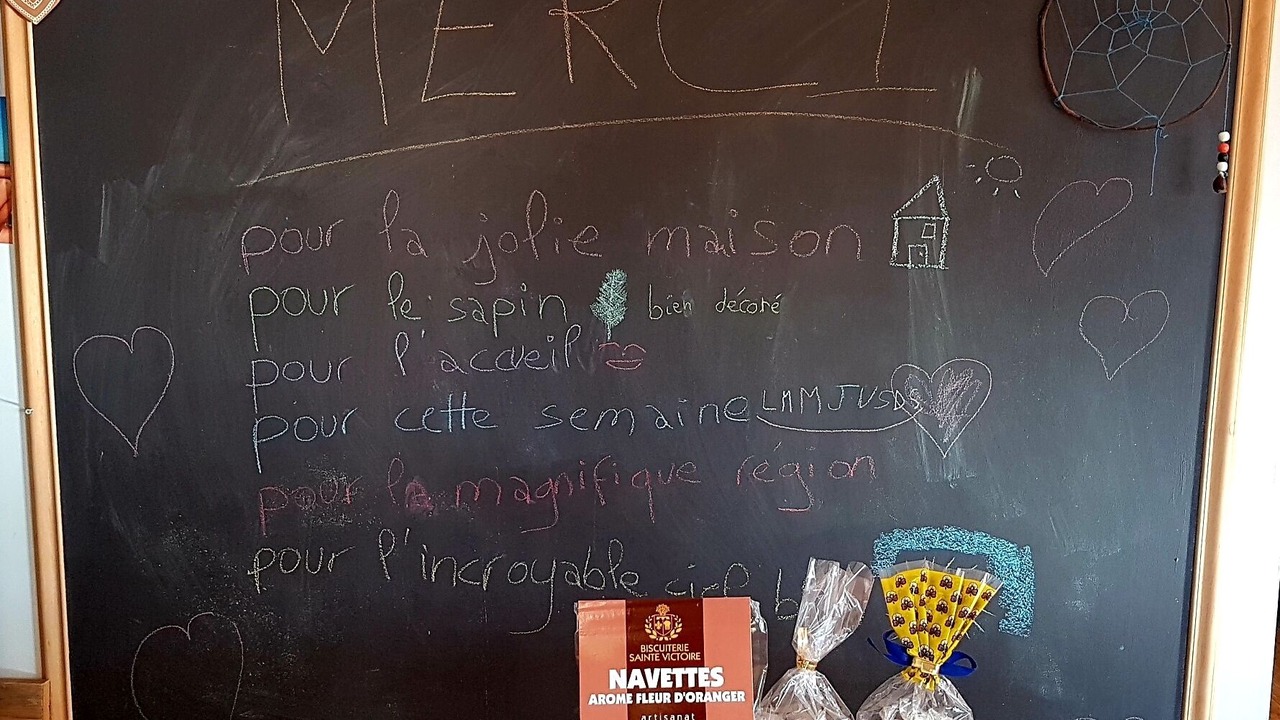 MERCI
pour la jolie maison
pour le sapin bien décoré
pour l'accueil
pour cette semaine
pour la magnifique région
pour l'incroyable ciel
BISCUITERIE
SAINTE VICTOIRE
NAVETTES
AROME FLEUR D'ORANGER
artisanat